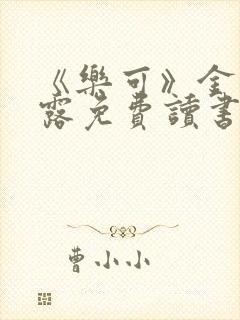 《樂可》金
露免費讀書
曹小小